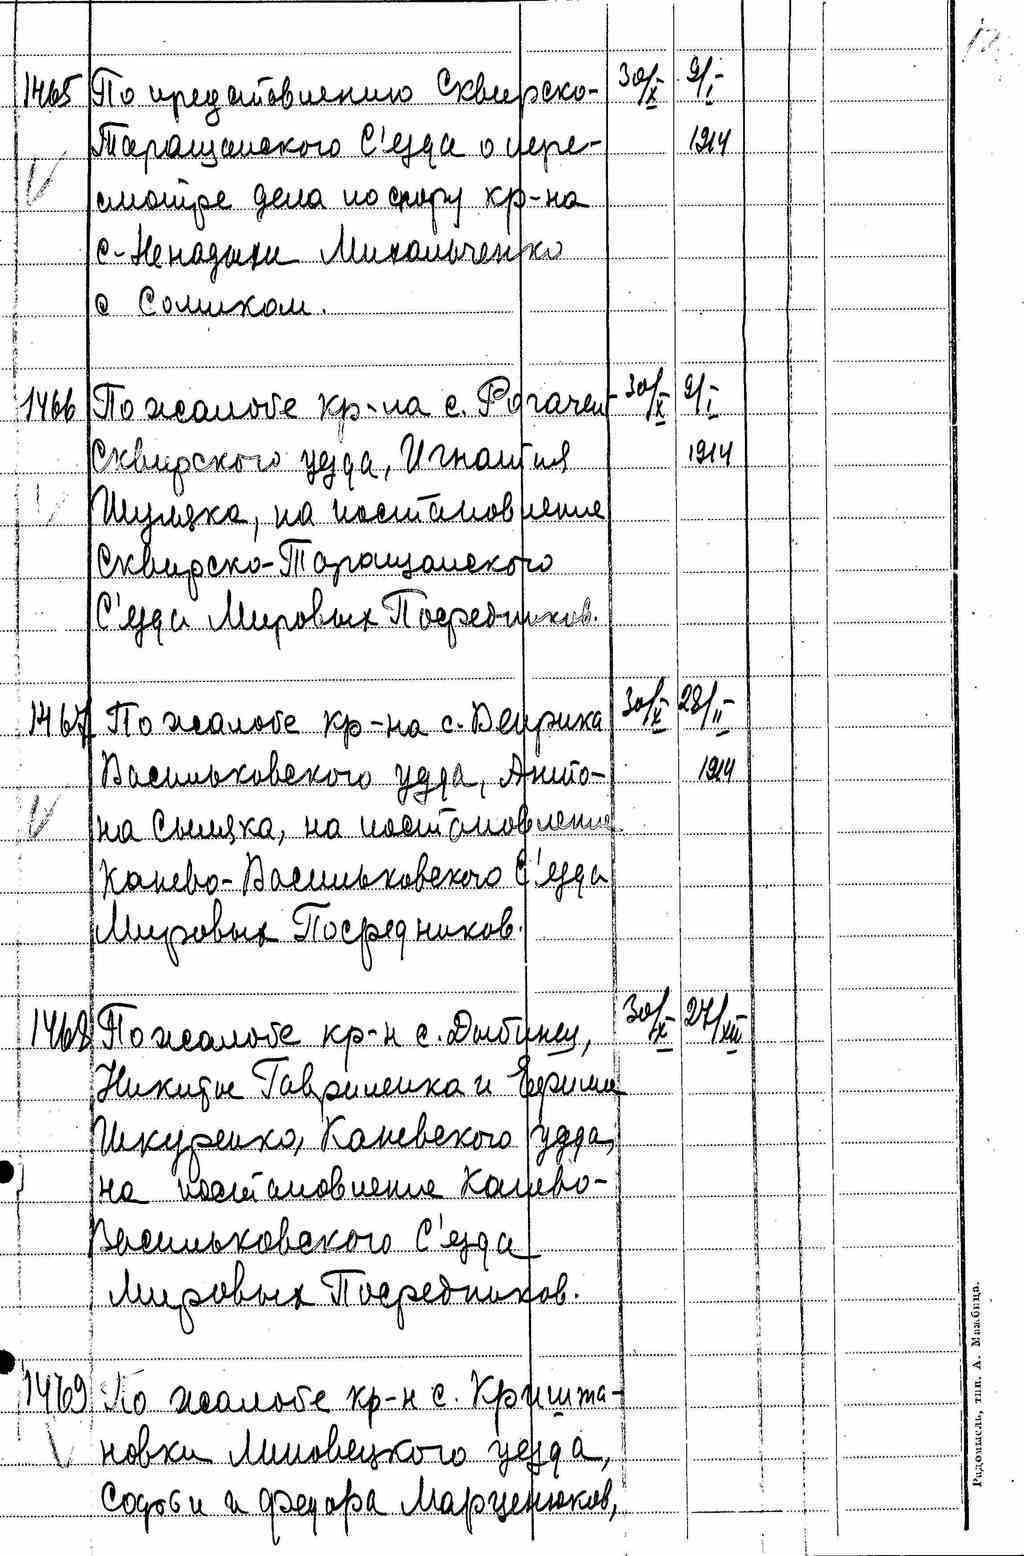 1465 По представлению Сквирско- 30/X 9/I
Таращанского С'езда о пере- 1914
смотре дела по спору кр-на
с-Ненадыхи Михальченко
с Соликом.
1466 По жалобе кр-на с. Рогачей 30/X 9/I
Сквирского уезда, Игнатия 1914
Шуляка, на постановление
Сквирско-Таращанского
С'езда Мировых Посредников.
1467 По жалобе кр-на с. 30/X 28/II
Васильковского уезда, Анто- 1914
на на постановление
Канево-Васильковского С'езда
Мировых Посредников.
1468 По жалобе кр-н с. Дыбинец, 30/X 27/XII
Никиты Гавриленка и Ефима
Шкуренко, Каневского уезда,
на постановление Канево-
Васильковского С'езда
Мировых Посредников.
1469 По жалобе кр-н с. Кришта-
новки Липовецкого уезда,
и Федора Марценюков,
Радомысль, тип. А.